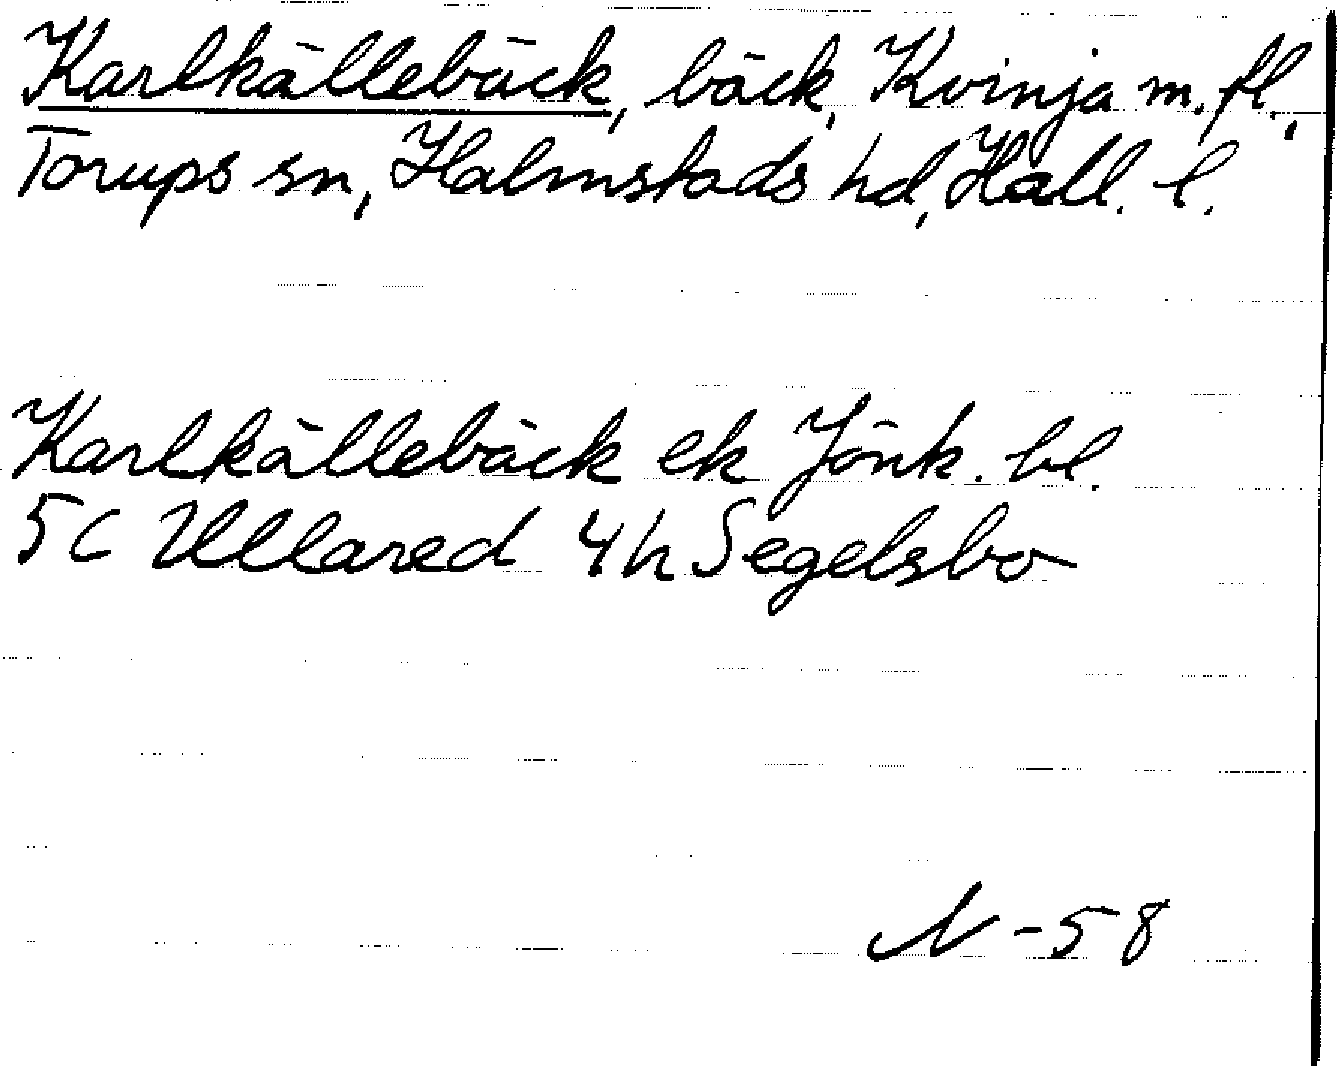 Karlkällebäck, bäck, Kvinja m. fl.,
Torups sn, Halmstads hd, Hall. l.
Karlkällebäck ek Jönk. bl.
5c Ullared 4h Segelsbo
N-58